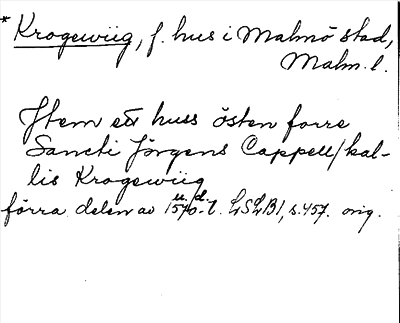 * Krogewiig, f. hus i Malmö stad,
Malm. l.
Jtem ett huss östen forre
Sancti Jörgens Cappell/kal-
lis Krogewiig
förra delen av 1570-t. LSLB1, s.457. orig.